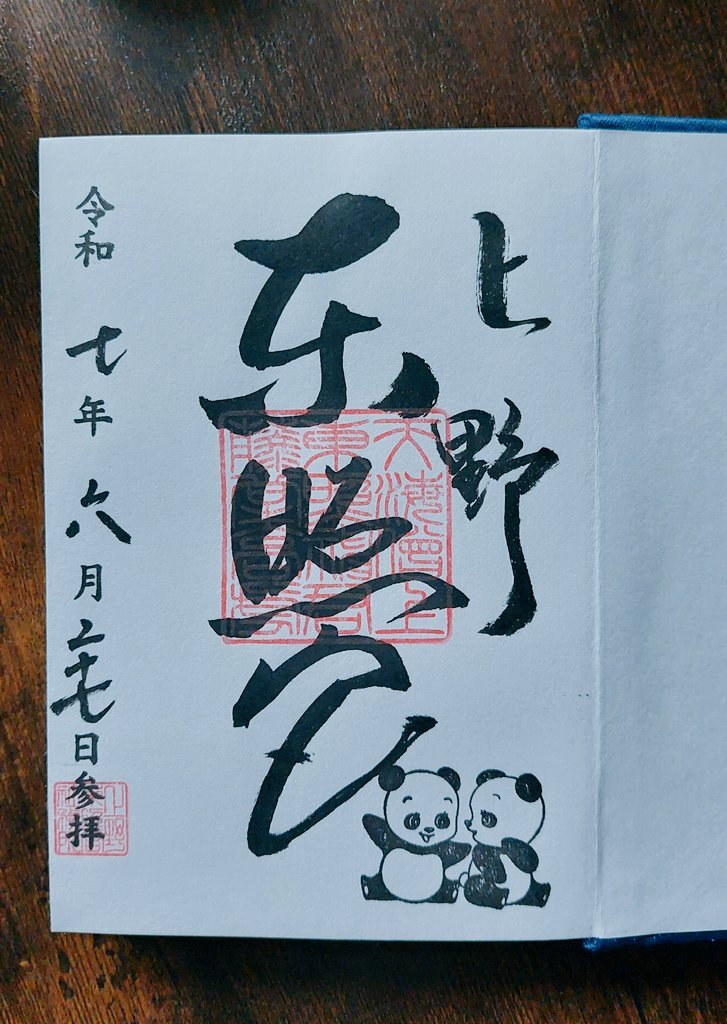 上野
东照宮
令和 七年 六月二十七日参拝